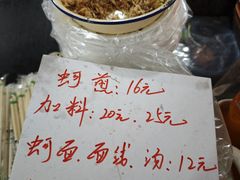 蚵煎:16元
加料:20元.25元
蚵面.面线.汤:12元